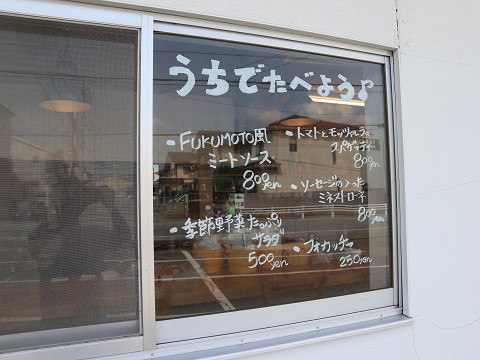 うちでたべよう♪
・FUKUMOTO風
ミートソース
800yen
・季節野菜たっぷり
サラダ
500yen
・トマトとモッツァレラの
スパゲッティー
800yen
・ソーセージの入った
ミネストローネ
800yen
・フォカッチャ
250yen